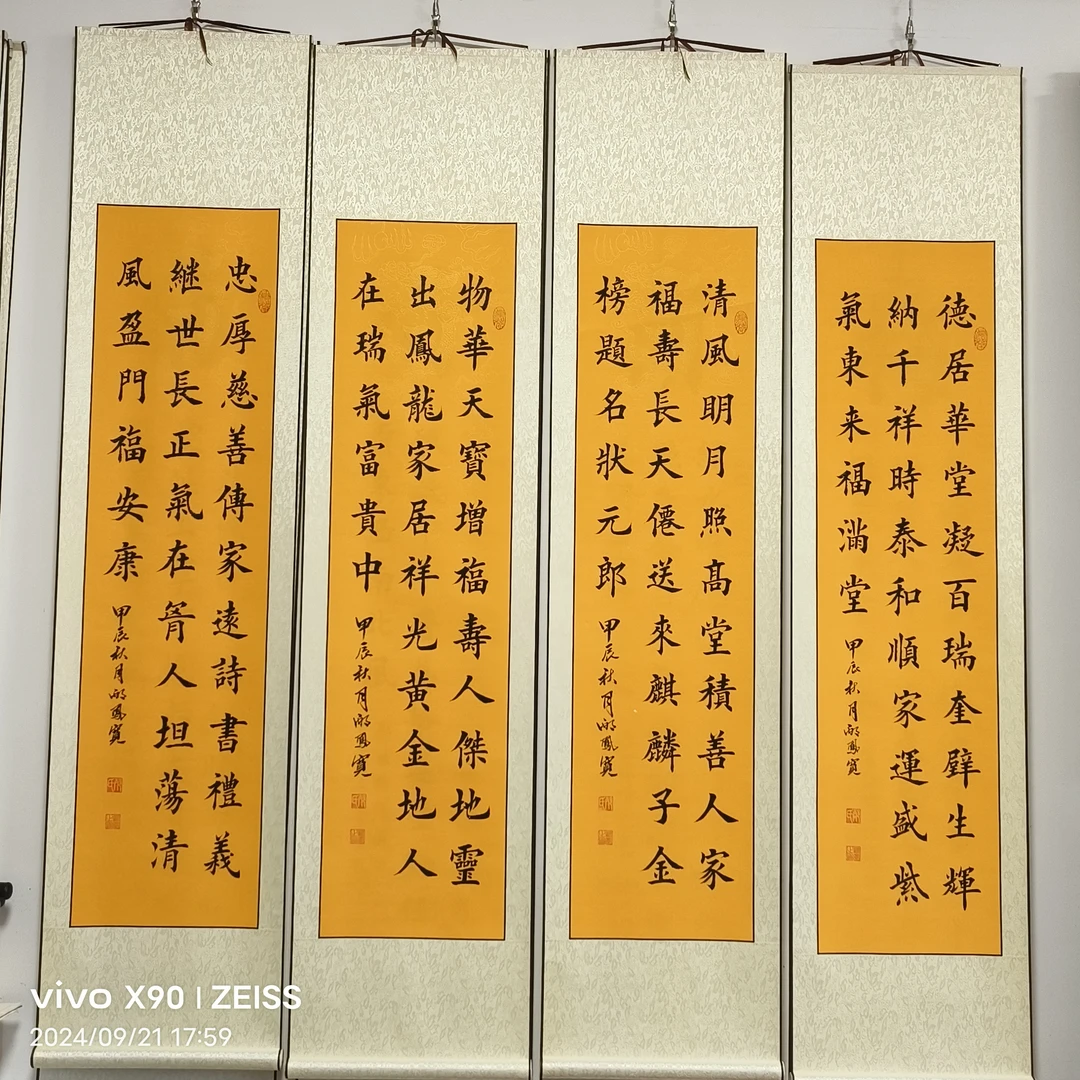 德居華堂凝百瑞奎壁生輝
納千祥時泰和順家運盛紫
氣東来福滿堂
甲辰秋月鳳寬
清風明月照高堂積善人家
福壽長天僊送來麒麟子金
榜題名狀元郎
甲辰秋月鳳寬
物華天寶增福壽人傑地靈
出鳳龍家居祥光黃金地人
在瑞氣富貴中
甲辰秋月鳳寬
忠厚慈善傳家遠詩書禮義
継世長正氣在胷人坦蕩清
風盈門福安康
甲辰秋月鳳寬
vivo X90 | ZEISS
2024/09/21 17:59